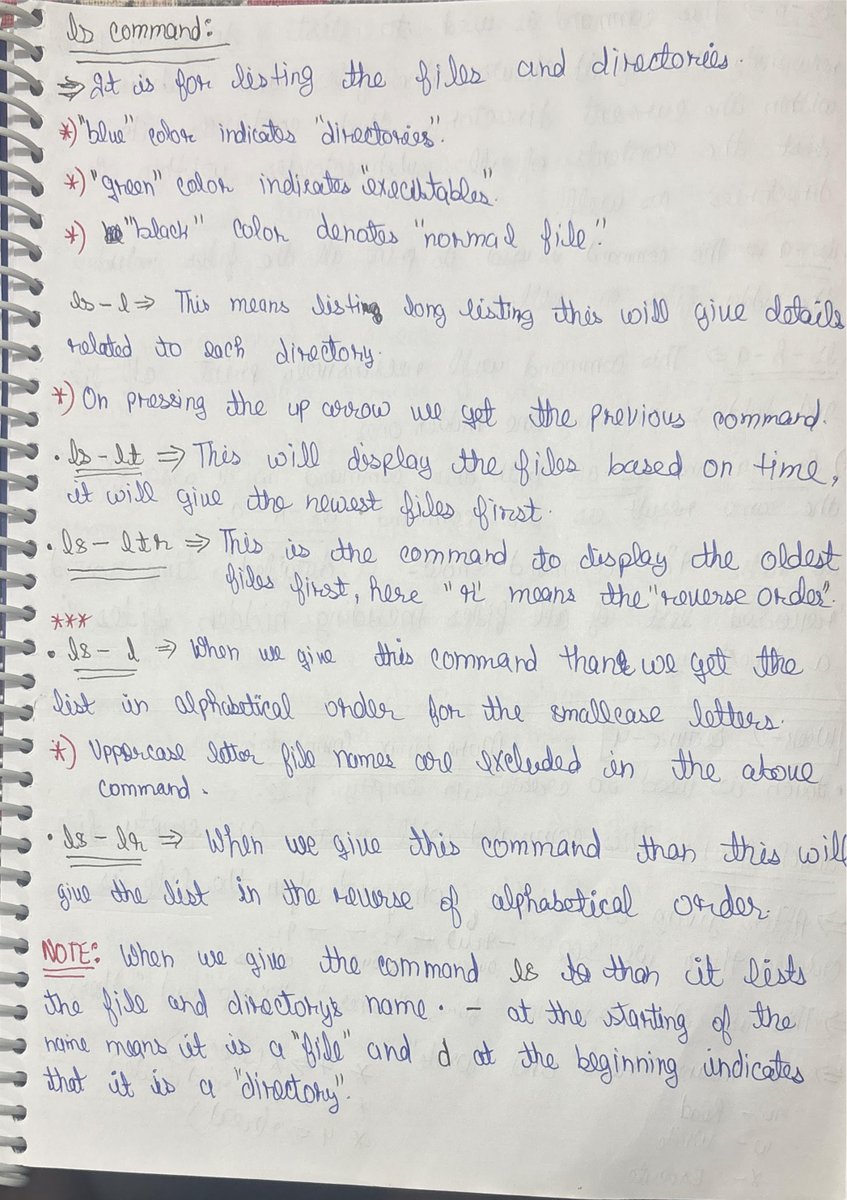 ls command:
⇒ It is for listing the files and directories.
*) "blue" color indicates "directories".
*) "green" color indicates "executables".
*) "black" color denotes "normal file".
ls - l ⇒ This means listing long listing this will give details
related to each directory.
*) On pressing the up arrow we get the previous command.
• ls - lt ⇒ This will display the files based on time,
it will give the newest files first.
• ls - ltr ⇒ This is the command to display the oldest
files first, here "r" means the "reverse order".
***
• ls - l ⇒ When we give this command than we get the
list in alphabetical order for the smallcase letters.
*) Uppercase letter file names are excluded in the above
command.
• ls - lr ⇒ When we give this command than this will
give the list in the reverse of alphabetical order.
NOTE: When we give the command ls than it lists
the file and directory's name. - at the starting of the
name means it is a "file" and d at the beginning indicates
that it is a "directory".